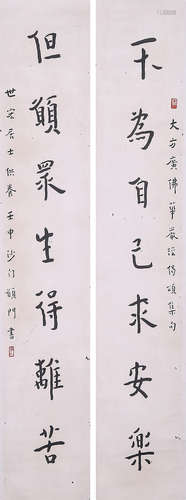 大方廣佛華嚴經偈頌集句
不為自己求安樂
但願眾生得離苦
居士供養 壬申 沙門 書